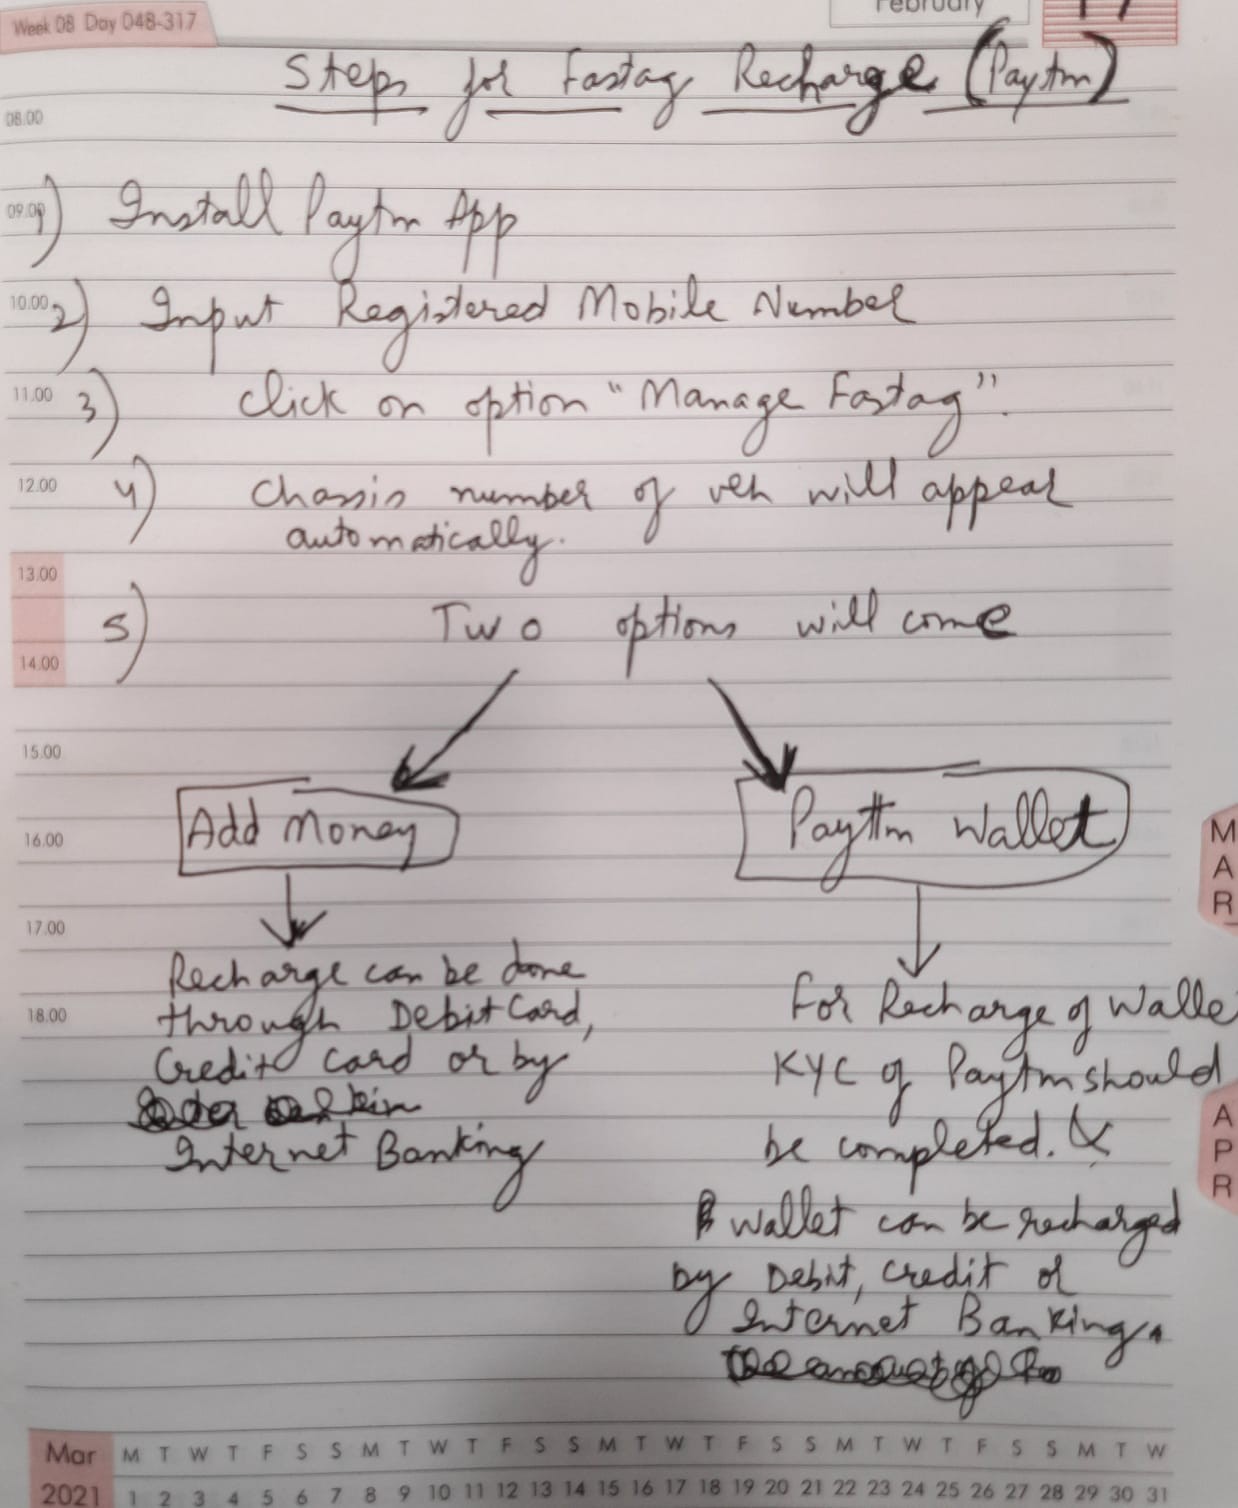 Week 08 Day 048-317
February
17
Steps for Fastag Recharge (Paytm)
08.00
09.00
1) Install Paytm App
10.00
2) Input Registered Mobile Number
11.00
3) Click on option "Manage Fastag".
12.00
4) Chassis number of veh will appear
automatically.
13.00
5) Two options will come
14.00
15.00
16.00
Add Money
Payttm Wallet
17.00
Recharge can be done
through Debit Card,
Credit card or by
Internet Banking
18.00
For Recharge of Walle
KYC of Paytm should
be completed. &
Wallet can be recharged
by Debit, credit or
Internet Banking.
MAR
APR
Mar M T W T F S S M T W T F S S M T W T F S S M T W T F S S M T W
2021 1 2 3 4 5 6 7 8 9 10 11 12 13 14 15 16 17 18 19 20 21 22 23 24 25 26 27 28 29 30 31